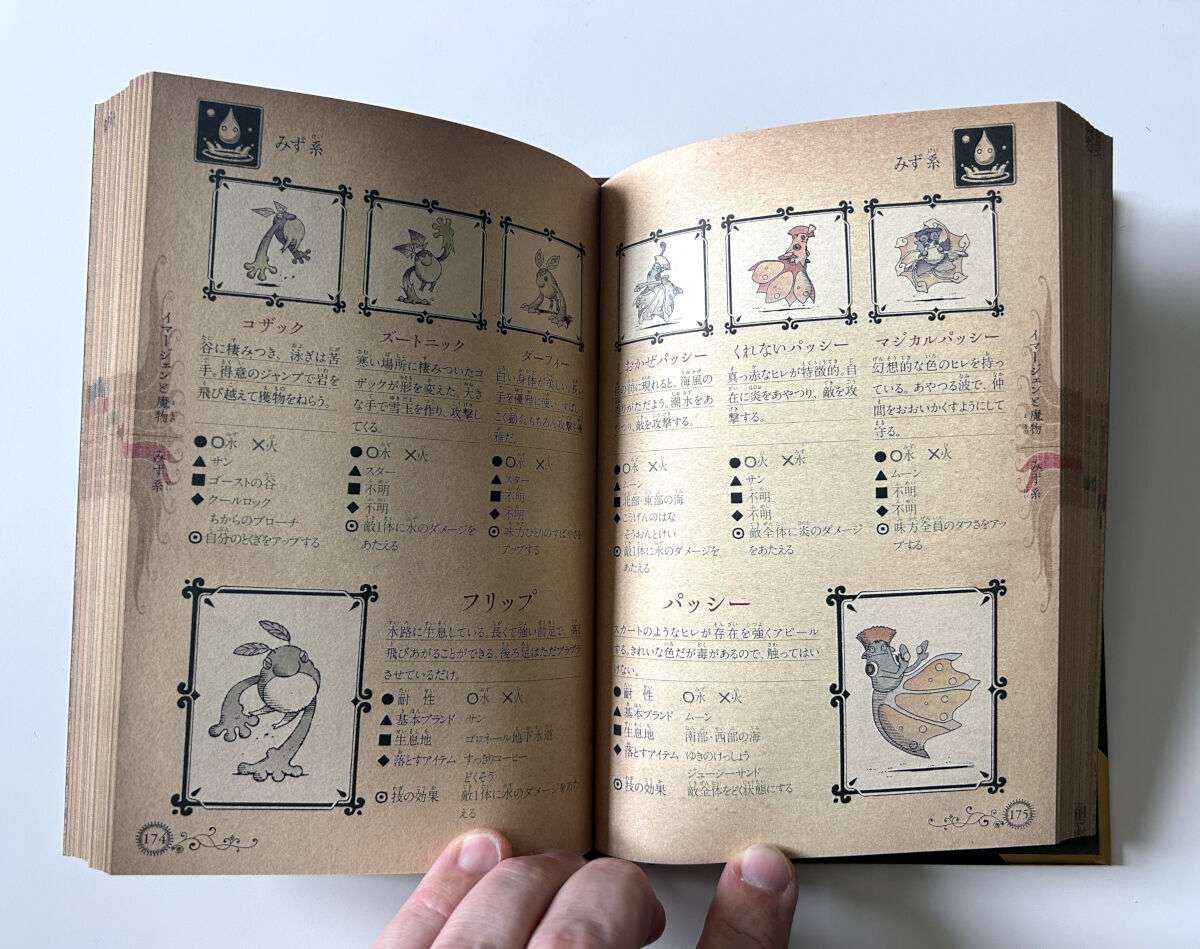 みず系
コザック
谷に棲みつき、泳ぎは苦
手。得意のジャンプで岩を
飛び越えて獲物をねらう。
●○水 ×火
▲サン
■ゴーストの谷
◆クールロック
ちからのブローチ
◉自分のとくぎをアップする
ズートニック
寒い場所に棲みついたコ
ザックが形を変えた。大き
な手で雪玉を作り、攻撃し
てくる。
●○水 ×火
▲スター
■不明
◆不明
◉敵1体に水のダメージを
あたえる
ダーフィー
白い身体が美しい。長い
手を優雅に
●○水 ×火
▲スター
■不明
◆不明
◉味方ひとりのすばやさを
アップする
フリップ
水路に生息している。長くて強い前足で、高く
飛びあがることができる。後ろ足はただブラブラ
させているだけ。
●耐性 ○水 ×火
▲基本ブランド サン
■生息地 ゴロネール地下水道
◆落とすアイテム すっきりコーヒー
どくそう
◉技の効果 敵1体に水のダメージをあた
える
イマージェンと魔物
みず系
174
みず系
おかぜパッシー
に現れると、海風の
香りがただよう。潮水をあ
やつり、敵を攻撃する。
●○水 ×火
▲ムーン
■北部・東部の海
◆こうげんのはな
そうおんとけい
◉敵1体に水のダメージを
あたえる
くれないパッシー
真っ赤なヒレが特徴的。自
在に炎をあやつり、敵を攻
撃する。
●○火 ×水
▲サン
■不明
◆不明
◉敵全体に炎のダメージ
をあたえる
マジカルパッシー
幻想的な色のヒレを持っ
ている。あやつる波で、仲
間をおおいかくすようにして
守る。
●○水 ×火
▲ムーン
■不明
◆不明
◉味方全員のタフさをアッ
プする
パッシー
スカートのようなヒレが存在を強くアピール
する。きれいな色だが毒があるので、触ってはい
けない。
●耐性 ○水 ×火
▲基本ブランド ムーン
■生息地 南部・西部の海
◆落とすアイテム ゆきのけっしょう
ジューシーサンド
◉技の効果 敵全体をどく状態にする
イマージェンと魔物
みず系
175